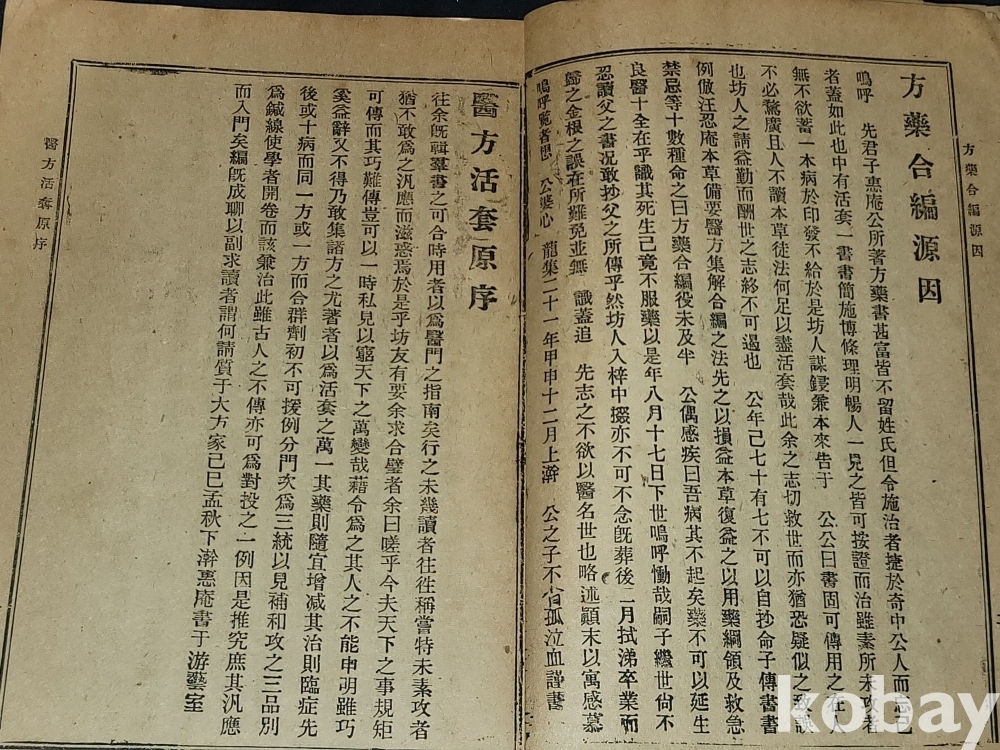 方藥合編源因
方藥合編源因
嗚呼 先君子惠庵公所著方藥書甚富皆不留姓氏但令施治者捷於奇中公人而忘己
者蓋如此也中有活套一書書簡施博條理明暢人一見之皆可按證而治雖素所未攻者
無不欲蓄一本病於印發不給於是坊人謀鋟兼本來告于 公公曰書固可傳用之在人
不必騖廣且人不讀本草徒法何足以盡活套哉此余之志切救世而亦猶恐疑似之致誤
也坊人之請益勤而酬世之志終不可遏也 公年已七十有七不可以自抄命子傳書書
例倣汪忍庵本草備要醫方集解合編之法先之以損益本草復益之以用藥綱領及救急
禁忌等十數種命之曰方藥合編役未及半 公偶感疾曰吾病其不起矣藥不可以延生
良醫十全在乎識其死生己竟不服藥以是年八月十七日下世嗚呼慟哉嗣子繼世尙不
忍讀父之書况敢抄父之所傳乎然坊人入梓中掇亦不可不念旣葬後二月拭涕卒業而
歸之金根之誤在所難免並無 識蓋追 先志之不欲以醫名世也略述顚末以寓感慕
嗚呼覽者想 公婆心 龍集二十一年甲申十二月上澣 公之子不肖孤泣血謹書
醫方活套原序
往余旣輯羣書之可合時用者以爲醫門之指南矣行之未幾讀者往往稱嘗特未素攻者
猶不敢爲之汎應而滋惑焉於是乎坊友有要余求合璧者余曰嗟乎今夫天下之事規矩
可傳而其巧難傳豈可以一時私見以窮天下之萬變哉藉令爲之其人之不能申明雖巧
奚益辭又不得乃敢集諸方之尤著者以爲活套之萬一其藥則隨宜增减其治則臨症先
後或十病而同一方或一方而合群劑初不可援例分門次爲三統以見補和攻之三品別
爲鍼線使學者開卷而該兼治此雖古人之不傳亦可爲對投之一例因是推究庶其汎應
而入門矣編旣成聊以副求讀者謂何請質于大方家己巳孟秋下澣惠庵書于游藝室
醫方活套原序
kobay